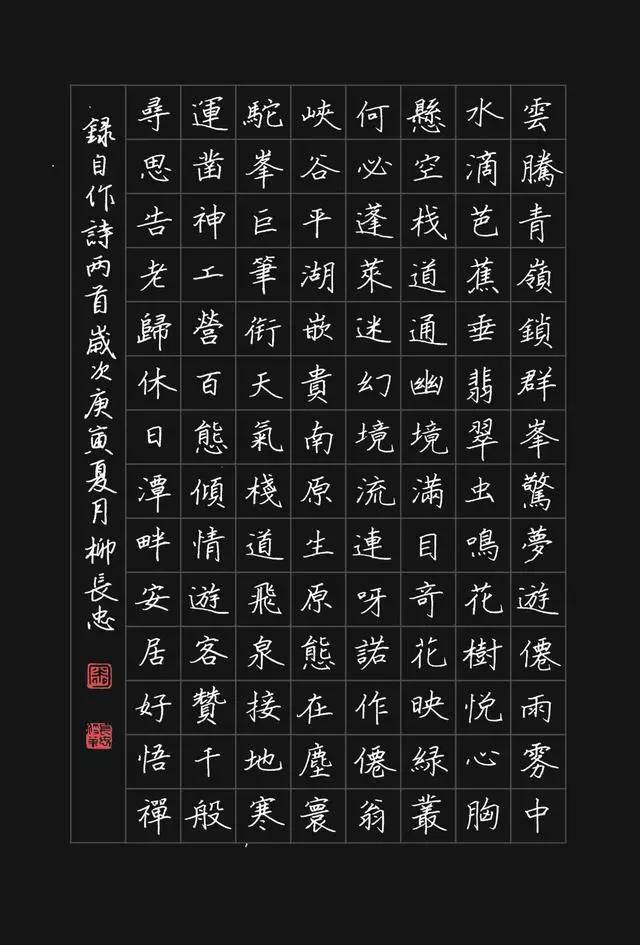 雲騰青嶺鎖群峯驚夢遊僊雨雰中
水滴芭蕉垂翡翠虫鳴花樹悦心胸
懸空栈道通幽境滿目奇花映綠叢
何必蓬萊迷幻境流連呀諾作僊翁
峽谷平湖嵌貴南原生原態在塵寰
駝峯巨筆銜天氣棧道飛泉接地寒
運凿神工營百態傾情遊客贊千般
尋思告老歸休日潭畔安居好悟禪
録自作詩两首歲次庚寅夏月柳長忠